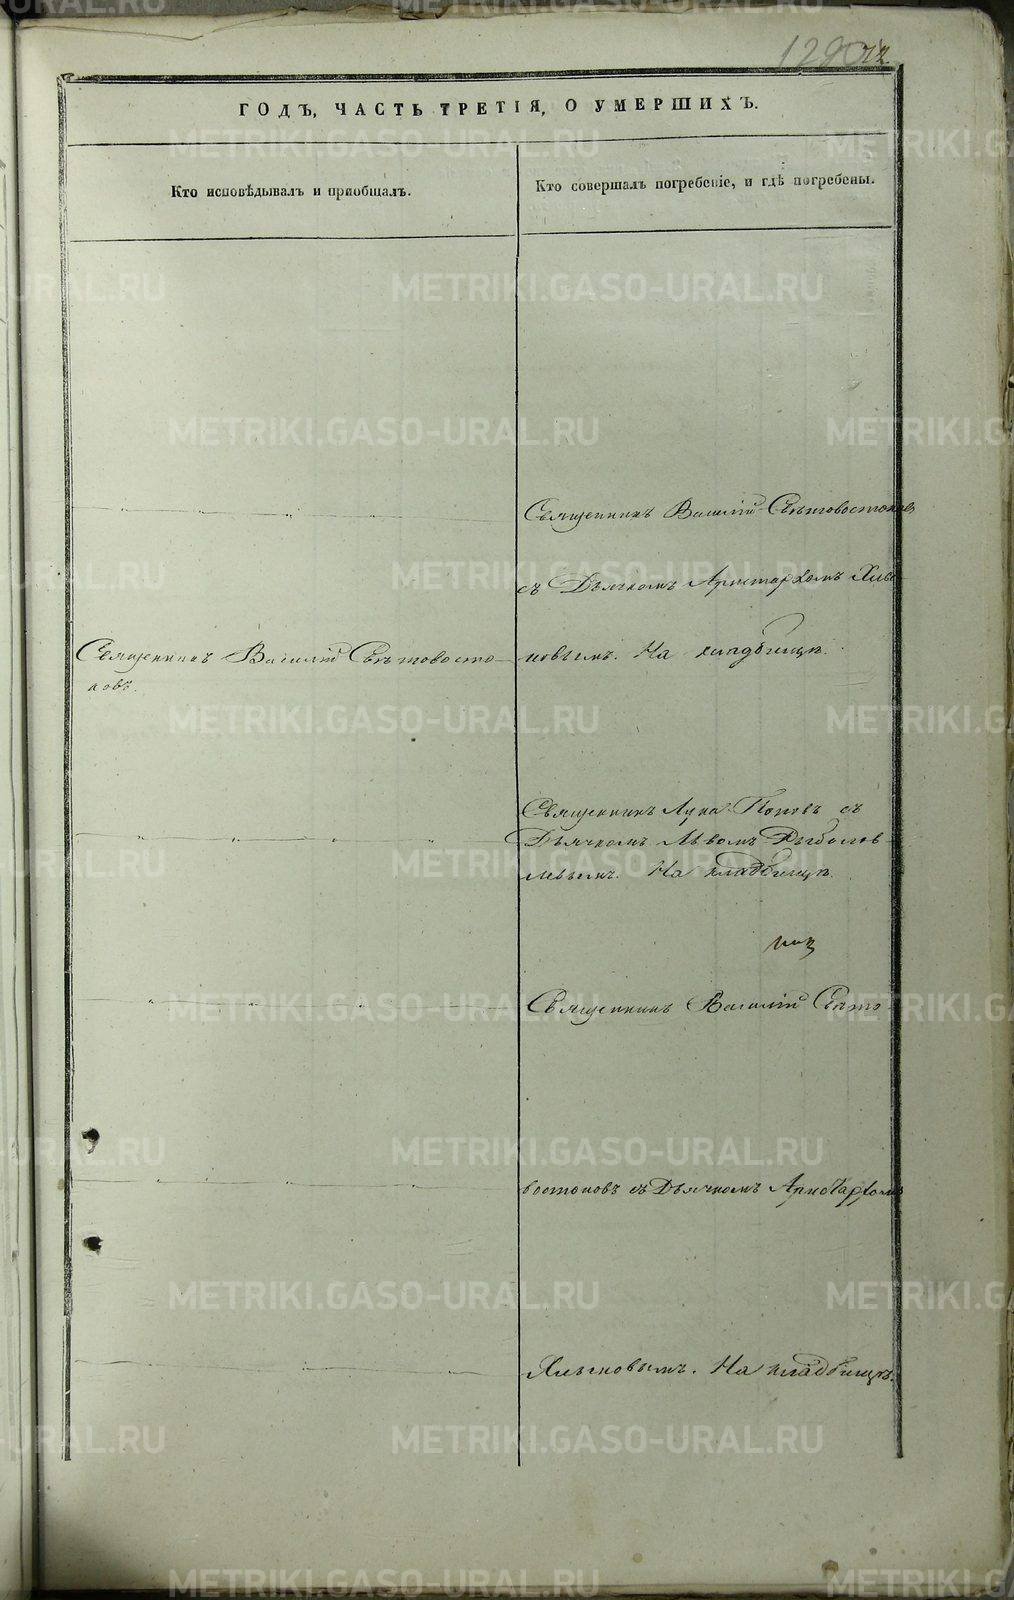 1290
72.
ГОДЪ, ЧАСТЬ ТРЕТІЯ, О УМЕРШИХЪ.
Кто исповѣдывалъ и пріобщалъ.
Кто совершалъ погребеніе, и гдѣ погребены.
Священникъ Василій Свѣтовостоковъ
съ Дьячкомъ Аристархомъ Хлы-
новымъ. На кладбищѣ.
Священникъ Василій Свѣтовосто-
ковъ.
Священникъ Лука Поповъ съ
Дьячкомъ Львомъ Рыболов-
левымъ. На кладбищѣ.
Священникъ Василій Свѣто-
востоковъ съ Дьячкомъ Аристархомъ
Хлыновымъ. На кладбищѣ.
METRIKI.GASO-URAL.RU